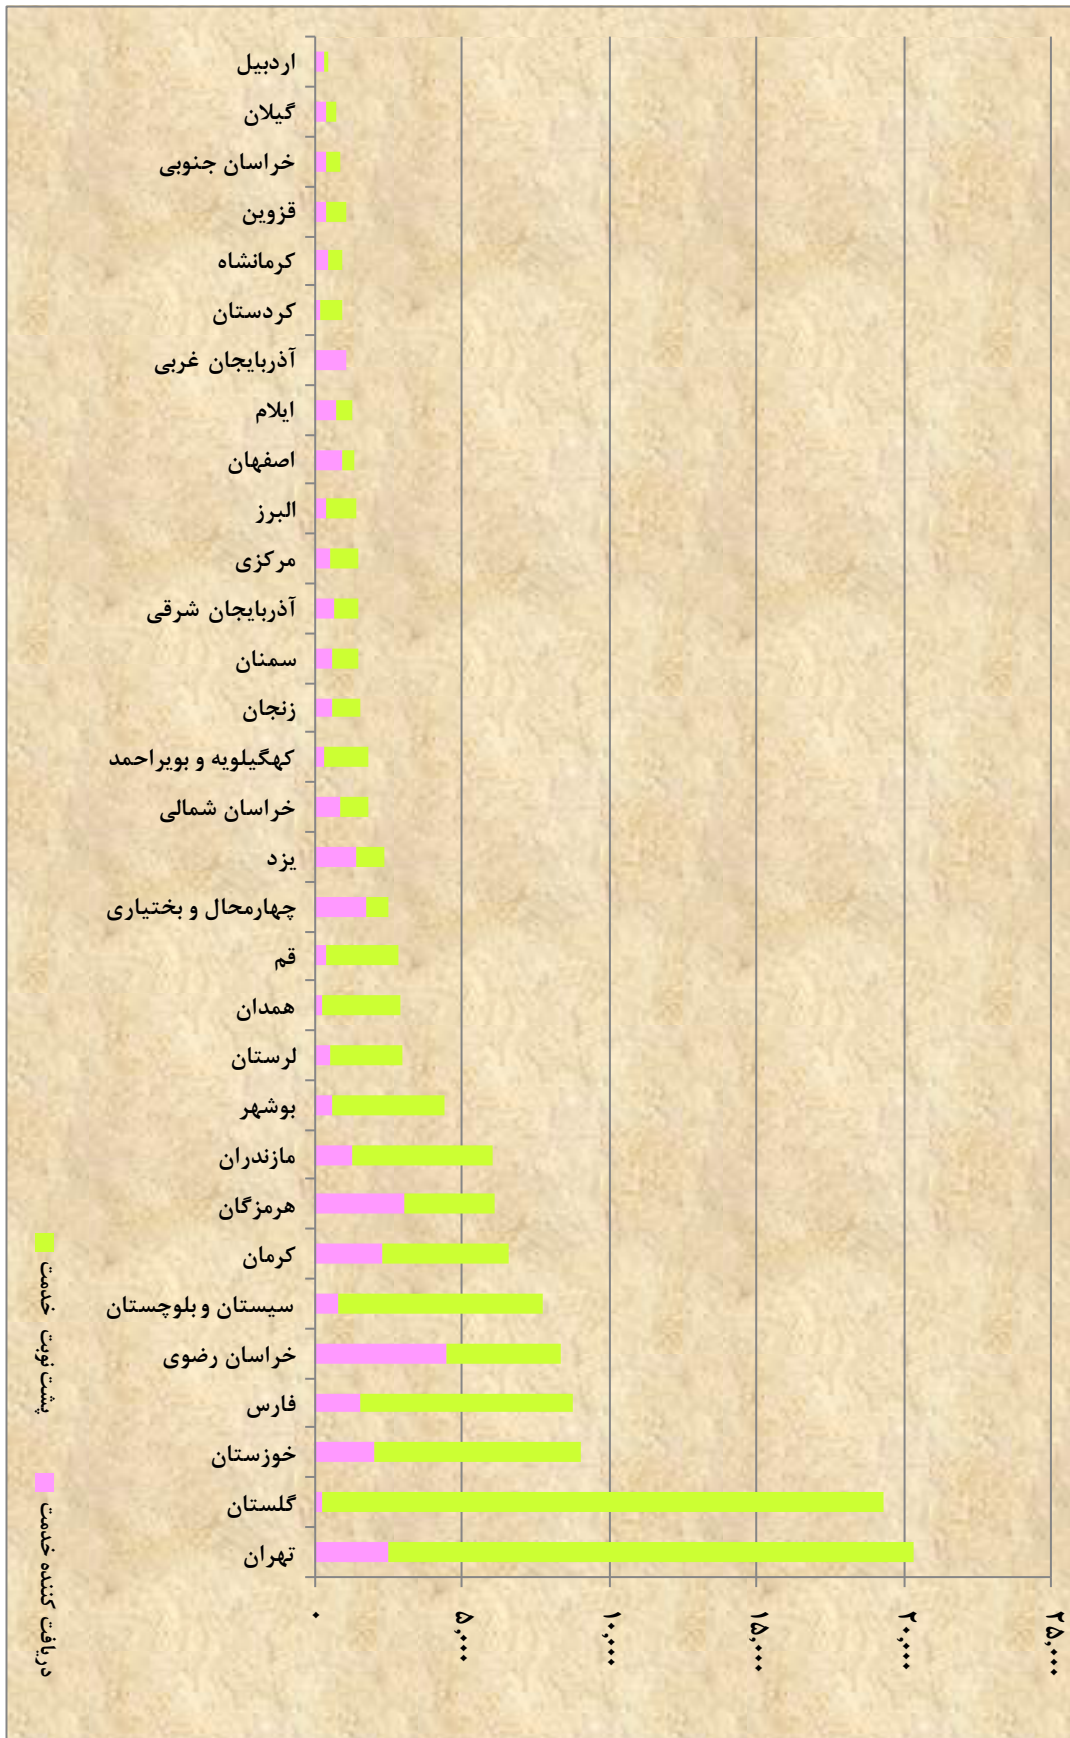 اردبیل
گیلان
خراسان جنوبی
قزوین
کرمانشاه
کردستان
آذربایجان غربی
ایلام
اصفهان
البرز
مرکزی
آذربایجان شرقی
سمنان
زنجان
کهگیلویه و بویراحمد
خراسان شمالی
یزد
چهارمحال و بختیاری
قم
همدان
لرستان
بوشهر
مازندران
هرمزگان
کرمان
سیستان وبلوچستان
خراسان رضوی
فارس
خوزستان
گلستان
تهران
۰
۵,۰۰۰
۱۰,۰۰۰
۱۵,۰۰۰
۲۰,۰۰۰
۲۵,۰۰۰
پشت نوبت خدمت
دریافت کننده خدمت